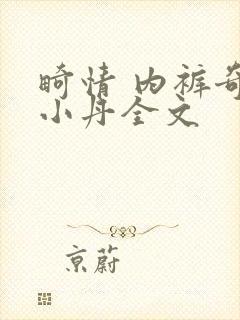 畸情 内裤奇
小丹全文
京蔚